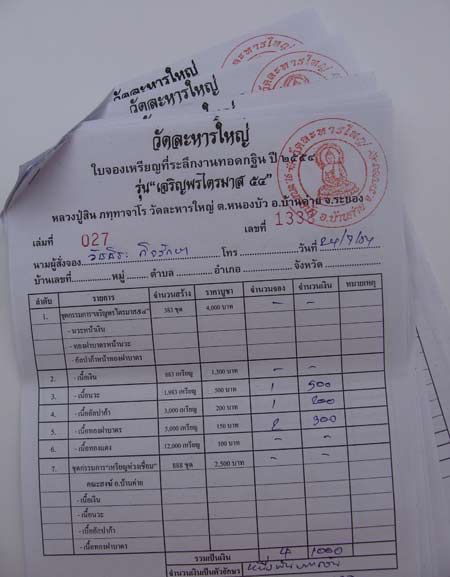 วัดละหารใหญ่
วัดละหารใหญ่
วัดละหารใหญ่
ใบจองเหรียญที่ระลึกงานทอดกฐิน ปี ๒๕๕๔
รุ่น"เจริญพรไตรมาส ๕๔"
หลวงปู่สิน ภทฺทาจาโร วัดละหารใหญ่ ต.หนองบัว อ.บ้านค่าย จ.ระยอง
เล่มที่ 027 เลขที่ 1338
นามผู้สั่งจอง โทร วันที่ 24/9/54
บ้านเลขที่ หมู่ ตำบล อำเภอ จังหวัด
ลำดับ รายการ จำนวนสร้าง ราคาบูชา จำนวนจอง จำนวนเงิน หมายเหตุ
1. ชุดกรรมการ"เจริญพรไตรมาส๕๔" 383 ชุด 4,000 บาท - -
- นวะหน้าเงิน
- ทองฝาบาตรหน้านวะ
- อัลปาก้าหน้าทองฝาบาตร
2. - เนื้อเงิน 983 เหรียญ 1,300 บาท - -
3. - เนื้อนวะ 1,983 เหรียญ 500 บาท 1 500
4. - เนื้ออัลปาก้า 3,000 เหรียญ 200 บาท 1 200
5. - เนื้อทองฝาบาตร 5,000 เหรียญ 150 บาท 2 300
6. - เนื้อทองแดง 12,000 เหรียญ 100 บาท - -
7. ชุดกรรมการ"เหรียญห่วงเชื่อม" 888 ชุด 2,500 บาท - -
คณะสงฆ์ อ.บ้านค่าย
- เนื้อเงิน
- เนื้อนวะ
- เนื้ออัลปาก้า
- เนื้อทองฝาบาตร
รวมเป็นเงิน 4 1000
จำนวนเงินเป็นตัวอักษร หนึ่งพันบาทถ้วน